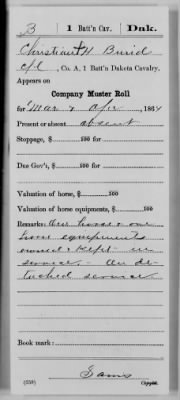 B | 1 Batt'n Cav. | Dak.
Christian H
Cpl, Co. A, 1 Batt'n Dakota Cavalry.
Appears on
Company Muster Roll
for Mar & Apr, 1864
Present or absent absent
Stoppage, $ 100 for
Due Gov't, $ 100 for
Valuation of horse, $ 100
Valuation of horse equipments, $ 100
Remarks: One horse & one
horse equipments
owned & kept in
service. On de-
tached service
Book mark:
(358)
Copyist.